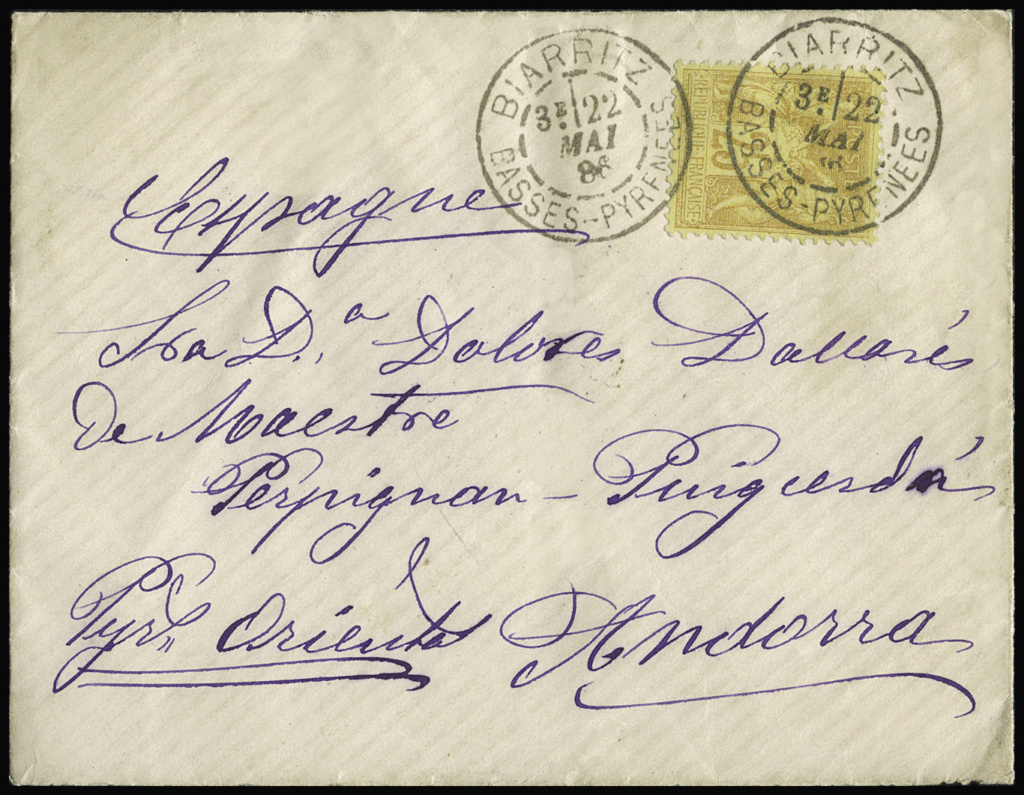 BIARRITZ
3E 22
MAI
86
BASSES-PYRENEES
BIARRITZ
3E 22
MAI
BASSES-PYRENEES
REPUBLIQUE FRANCAISE
25
Espagne
Sra D.ª Dolores Dallarés
de Maestre
Perpignan - Puigcerdá
Pyrs Oriental Andorra